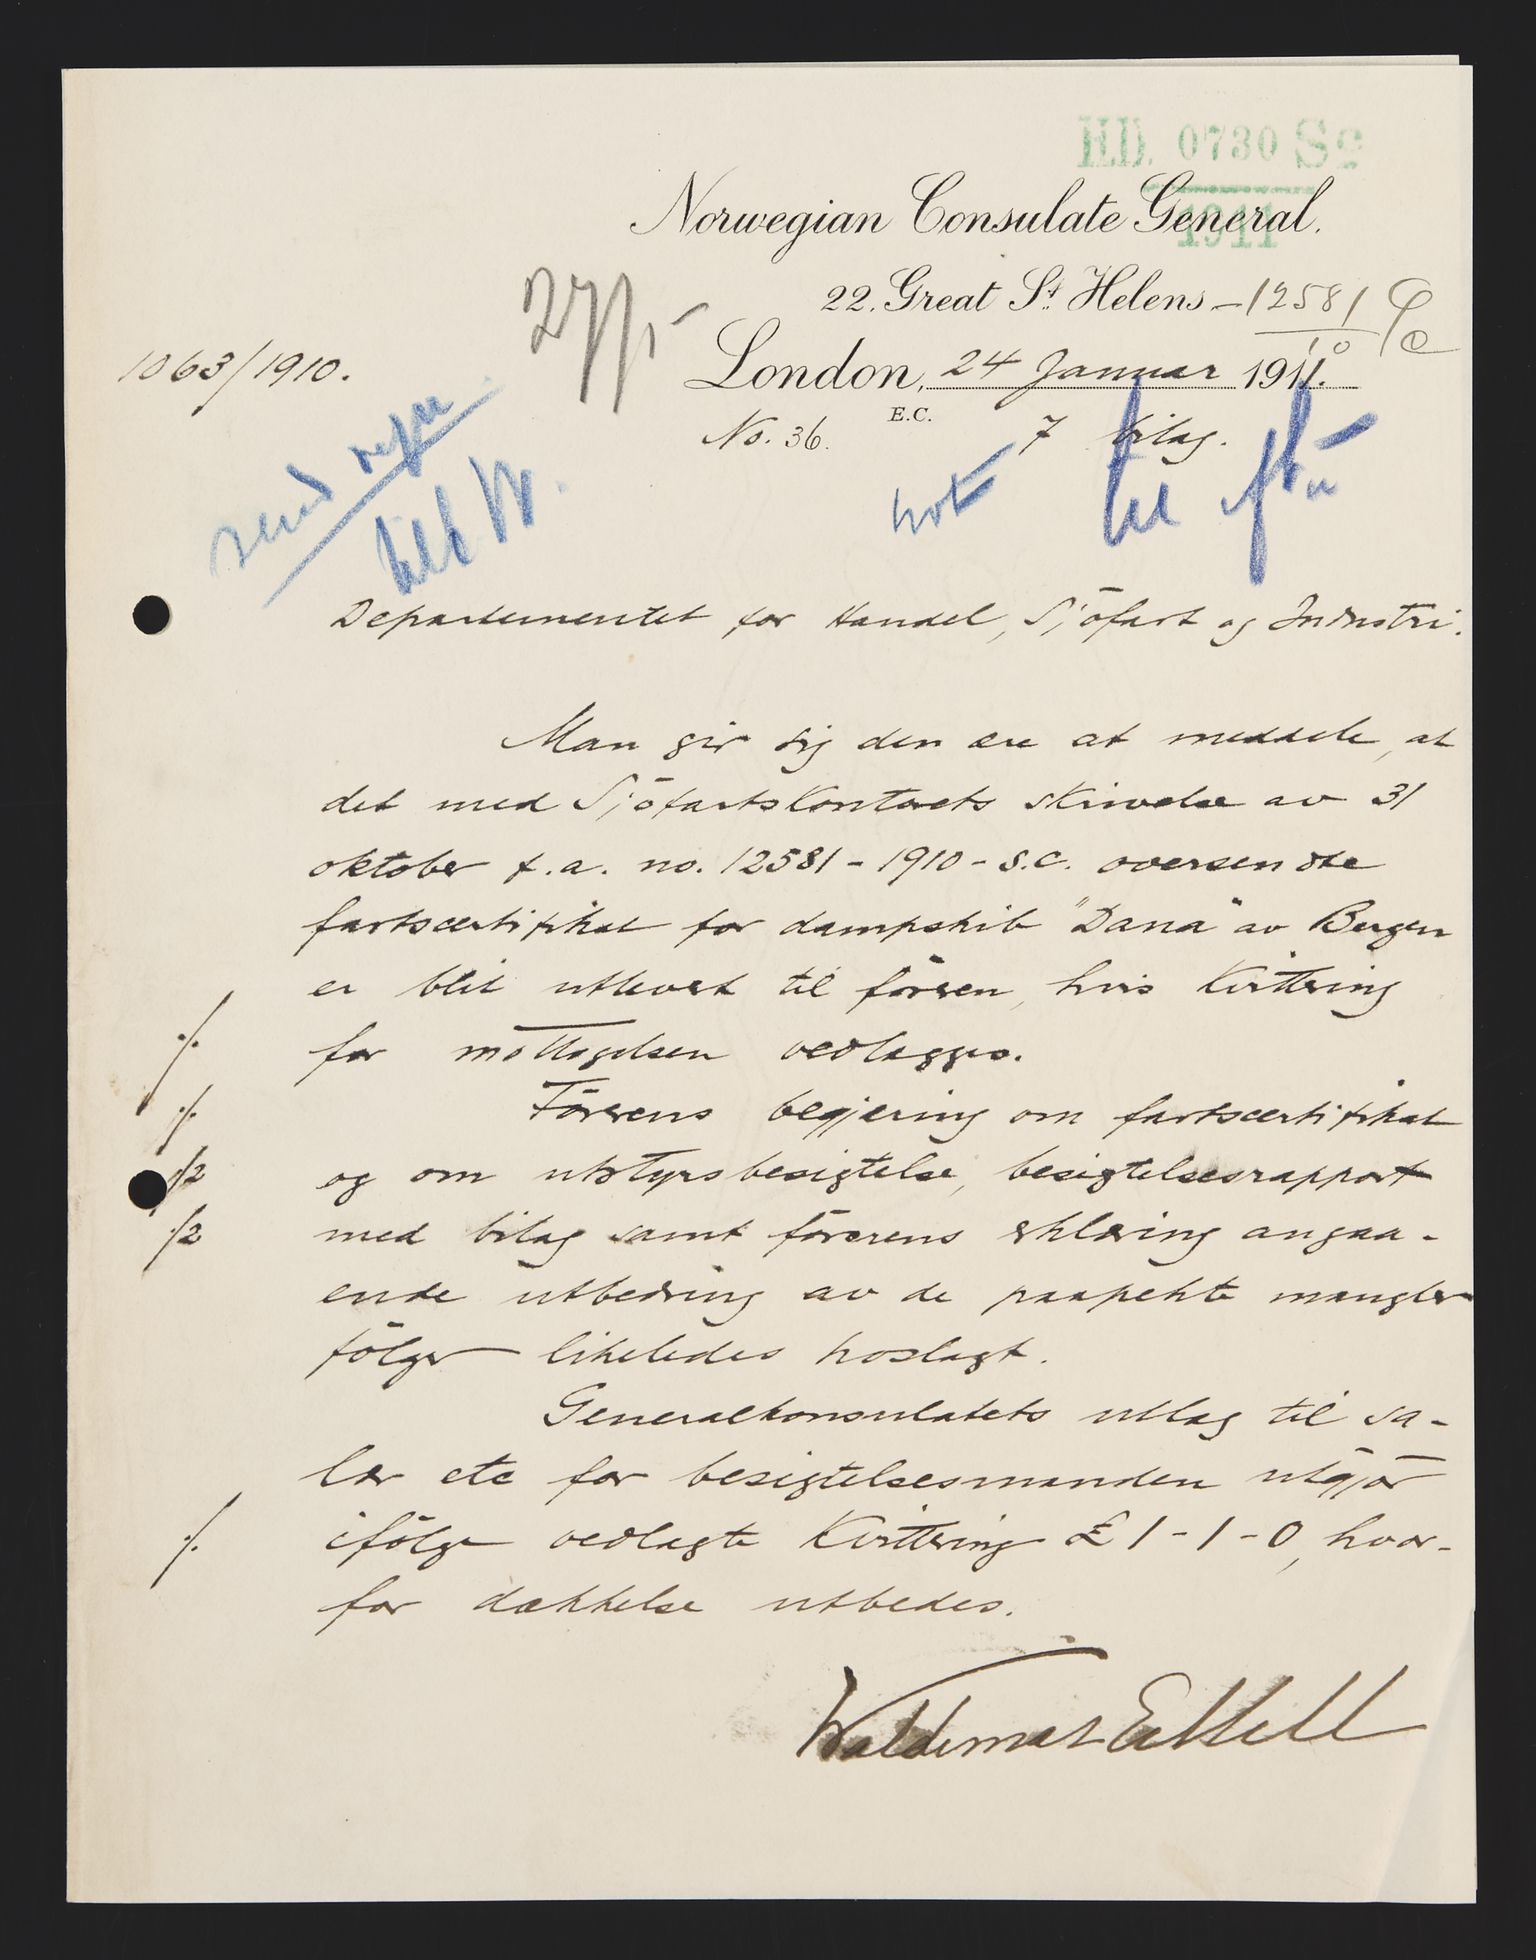 H.D. 0730 Sc
1911
Norwegian Consulate General.
22. Great St. Helens - 12581
10
27/1
1063/1910.
London, 24 Januar 1911.
E.C.
No. 36.
7 bilag.
send
not
til
Departementet for Handel, Sjöfart og Industri.
Man gir sig den ære at meddele, at
det med Sjöfartskontorets skrivelse av 31
oktober f.a. no. 12581-1910-S.C. oversendte
fartscertifikat for dampskib "Dana" av Bergen
er blit utlevert til föreren, hvis kvittering
for mottagelsen vedlægges.
Förerens begjering om fartscertifikat
og om utstyrsbesigtelse, besigtelsesrapport
med bilag samt förerens erklæring angaa-
ende utbedring av de paapekte mangler
fölger likeledes hoslagt.
Generalkonsulatets utlag til sa-
lær etc for besigtelsesmanden utgjör
ifölge vedlagte kvittering £ 1-1-0, hvor-
for dækkelse utbedes.
·/.
·/.
·/2
·/2
·/.
Waldemar Eckell